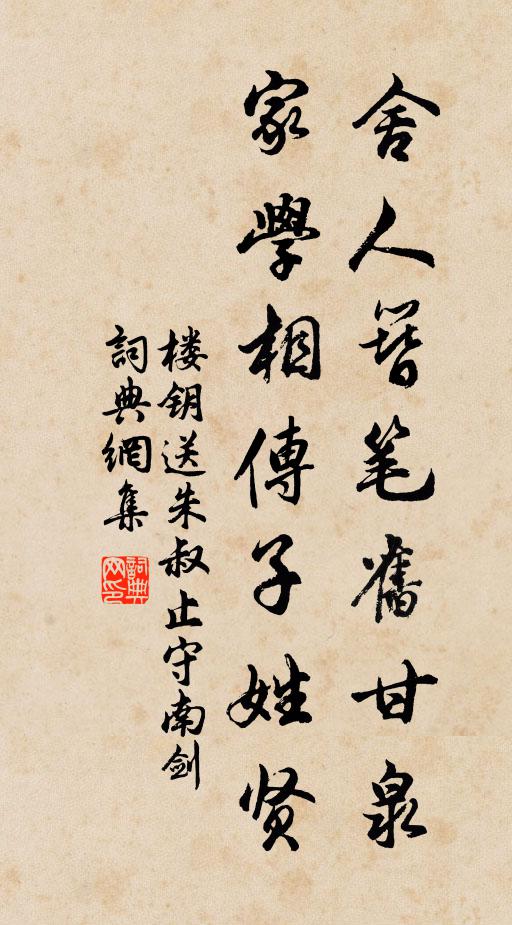 舍人簪笔舊甘泉
家學相傳子姓贤
楼钥送朱叔止守南剑
詞典網集
詞典网印